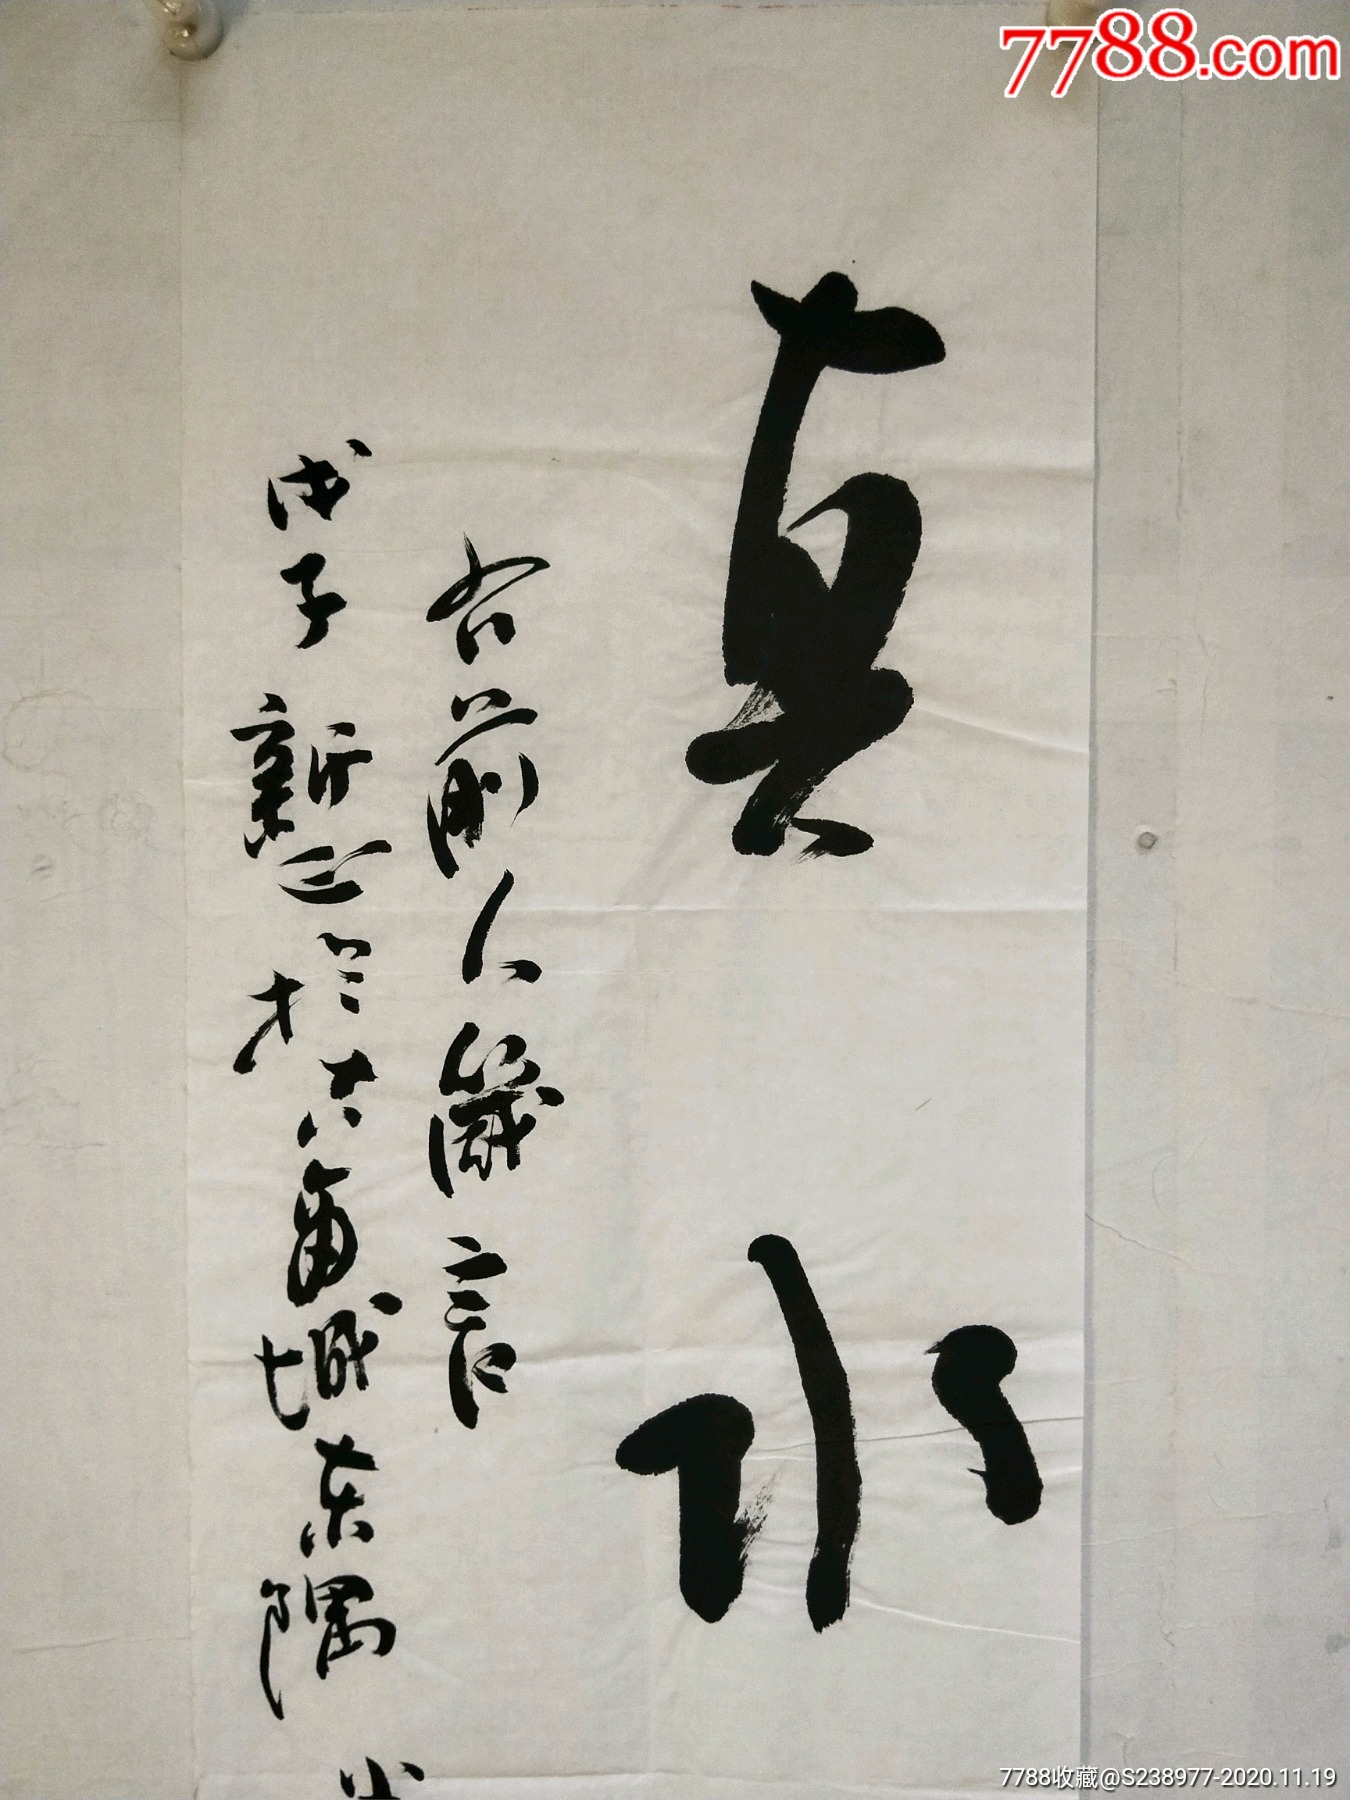 7788.com
真水
右前人箴言
戊子新正於古番城东隅
7788收藏@S238977-2020.11.19